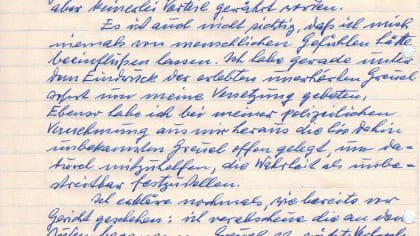 aber keinerlei Vorteil gewährt worden.
Es ist auch nicht richtig, daß ich mich
niemals von menschlichen Gefühlen hätte
beeinflußen lassen. Ich habe gerade unter
dem Eindruck der erlebten unerhörten Greuel
sofort um meine Versetzung gebeten.
Ebenso habe ich bei meiner polizeilichen
Vernehmung aus mir heraus die bis dahin
unbekannten Greuel offen gelegt, um da-
durch mitzuhelfen, die Wahrheit als unbe-
streitbar festzustellen.
Ich erkläre nochmals, wie bereits vor
Gericht geschehen: ich verabscheue die an den
Juden begangenen Greuel